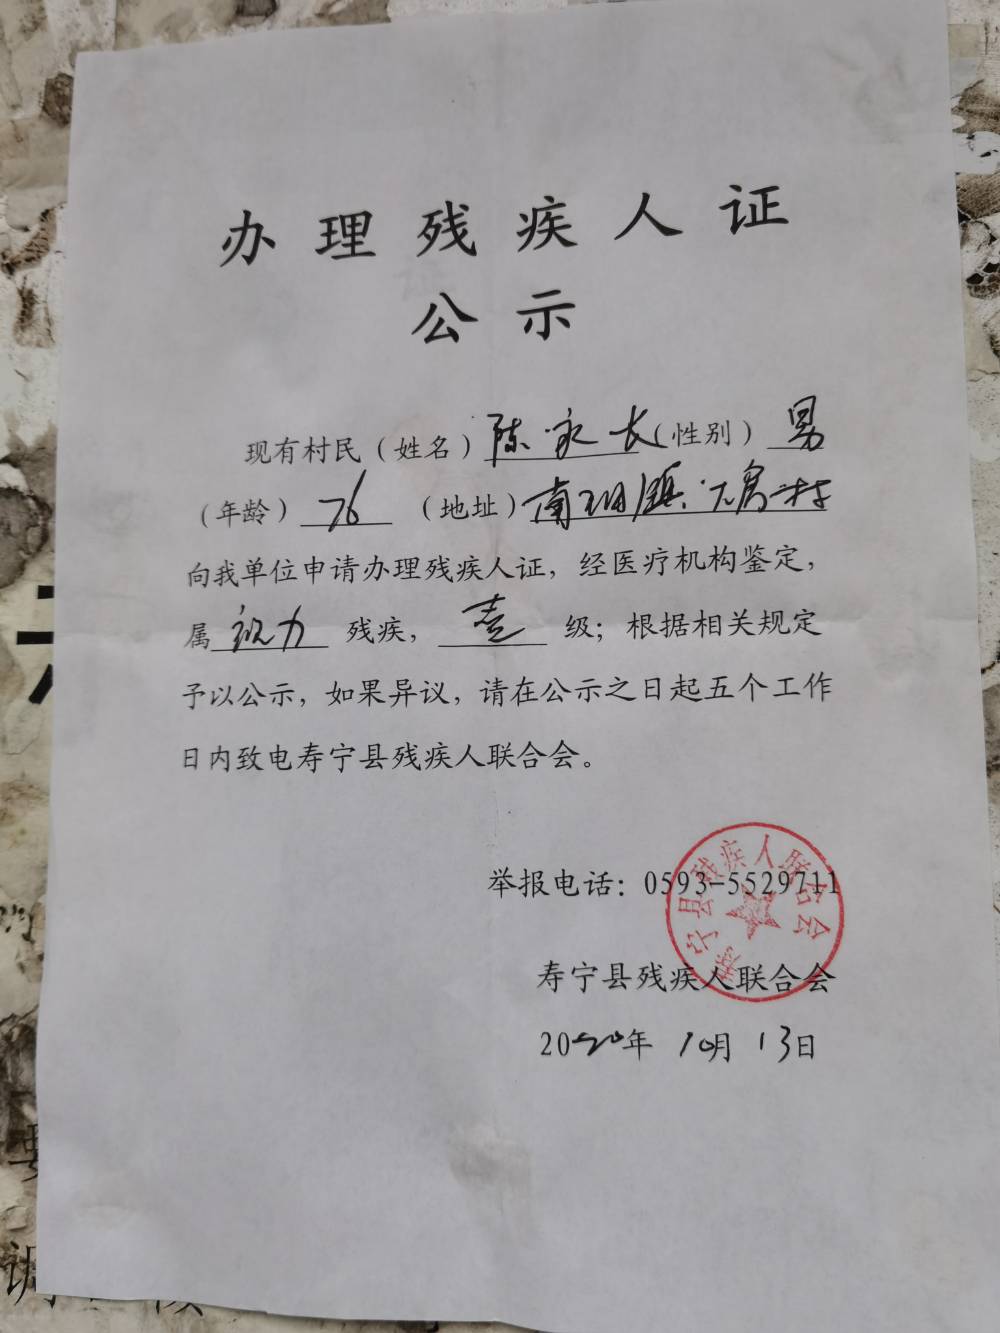 办理残疾人证
公示
现有村民（姓名）陈永长（性别）男
（年龄）76（地址）南阳镇大房村
向我单位申请办理残疾人证，经医疗机构鉴定，
属视力残疾，壹级；根据相关规定
予以公示，如果异议，请在公示之日起五个工作
日内致电寿宁县残疾人联合会。
举报电话：0593-5529711
寿宁县残疾人联合会
寿宁县残疾人联合会
2020年10月13日